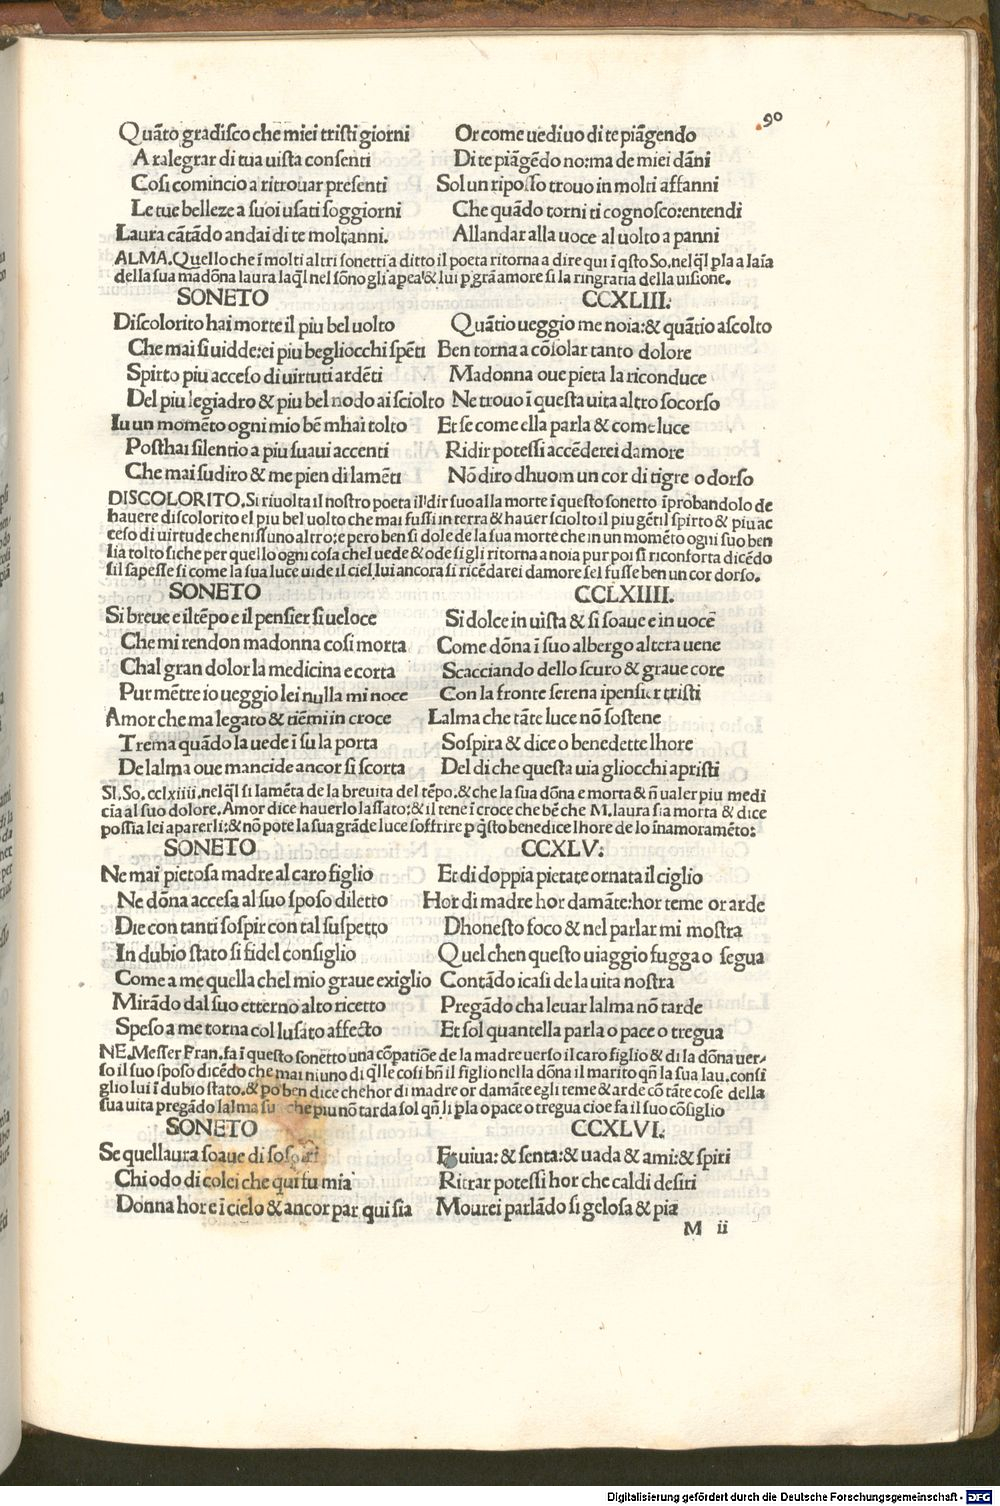 90
Quāto gradisco che miei tristi giorni Or come uedi uo di te piāgendo
A ralegrar di tua uista consenti Di te piāgēdo no:ma de miei dāni
Cosi comincio a ritrouar presenti Sol un riposso trouo in molti affanni
Le tue bellezze a suoi usati soggiorni Che quādo torni ti cognosco:entendi
Laura cātādo andai di te molt,anni. Allandar alla uoce al uolto a panni
ALMA. Quello che ī molti altri sonetti a ditto il poeta ritorna a dire qui ī qsto So. nel ql pla a laīa
della sua madōna laura laql nel sōno gli apea & lui p grā amore si la ringratia della uisione.
SONETO CCXLIII.
Discolorito hai morte il piu bel uolto Quātio ueggio me noia:& quātio ascolto
Che mai si uidde:ei piu begliocchi spēti Ben torna a cōsolar tanto dolore
Spirto piu acceso di uirtuti ardēti Madonna oue pieta la riconduce
Del piu legiadro & piu bel nodo ai sciolto Ne trouo ī questa uita altro socorso
Iu un momēto ogni mio bē mhai tolto Et se come ella parla & come luce
Posthai silentio a piu suaui accenti Ridir potessi accēderei damore
Che mai sudiro & me pien di lamēti Nō diro dhuom un cor di tigre o dorso
DISCOLORITO. Si riuolta il nostro poeta il dir suo alla morte ī questo sonetto īprobandolo de
hauere discolorito el piu bel uolto che mai fussi in terra & hauer sciolto il piu gētil spirto & piu ac
ceso di uirtude che nissuno altro:e pero ben si dole de la sua morte che in un momēto ogni suo ben
lia tolto si che per quello ogni cosa chel uede & ode si gli ritorna a noia pur poi si riconforta dicēdo
sil sapesse si come la sua luce uide il ciel lui ancora si ricēdarei damore sel fusse ben un cor dorso.
SONETO CCLXIIII.
Si breue e il tēpo e il pensier si ueloce Si dolce in uista & si soaue e in uoce
Che mi rendon madonna cosi morta Come dōna ī suo albergo altera uene
Chal gran dolor la medicina e corta Scacciando dello scuro & graue core
Pur mētre io ueggio lei nulla mi noce Con la fronte serena ipensier tristi
Amor che ma legato & tiēmi in croce Lalma che tāte luce nō sostene
Trema quādo la uede ī su la porta Sospira & dice o benedette lhore
De lalma oue mancide ancor si scorta Del di che questa uia gliocchi apristi
SI. So. cclxiiii. nel ql si lamēta de la breuita del tēpo. & che la sua dōna e morta & ñ ualer piu medi
cīa al suo dolore. Amor dice hauerlo lassato:& il tene ī croce che bē che M. laura sia morta & dice
possia lei aparerli:& nō pote la sua grāde luce soffrire p qsto benedice lhore de lo īnamoramēto:
SONETO CCXLV.
Ne mai pietosa madre al caro figlio Et di doppia pietate ornata il ciglio
Ne dōna accesa al suo sposo diletto Hor di madre hor damāte:hor teme or arde
Die con tanti sospir con tal suspetto Dhonesto foco & nel parlar mi mostra
In dubio stato si fidel consiglio Quel chen questo uiaggio fugga o segua
Come a me quella chel mio graue exiglio Contādo i casi de la uita nostra
Mirādo dal suo etterno alto ricetto Pregādo cha leuar lalma nō tarde
Speso a me torna col lusato affecto Et sol quantella parla o pace o tregua
NE. Messer Fran. fa ī questo sonetto una cōpatiōe de la madre uerso il caro figlio & di la dōna uer-
so il suo sposo dicēdo che mai niuno di qlle cosi bñ il figlio nella dōna il marito qñ la sua lau. consi
glio lui ī dubio stato. & po ben dice che hor di madre or damāte egli teme & arde cō tāte cose della
sua uita pregādo lalma su che piu nō tarda sol qñ li pla o pace o tregua cioe fa il suo cōsiglio
SONETO CCXLVI.
Se quellaura soaue di sospiri Et uiua: & senta:& uada & ami:& spiri
Chi odo di colei che qui fu mia Ritrar potessi hor che caldi desiri
Donna hor e ī cielo & ancor par qui sia Mourei parlādo si gelosa & pia
M ii
Digitalisierung gefördert durch die Deutsche Forschungsgemeinschaft - DFG